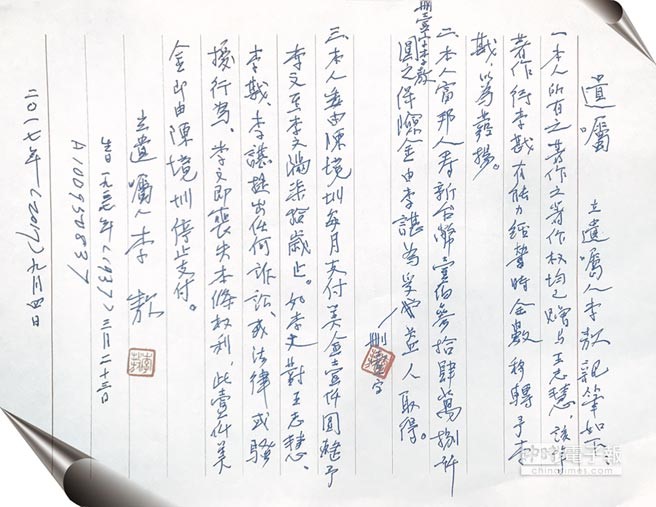 遺囑　立遺囑人李敖親筆如下：
一、本人所有之著作之著作權均已贈与王志慧，該等
著作行李戡有能力經營時全數移轉予李
戡，以為嘉揚。
二、本人富邦人寿新台幣壹佰參拾肆萬捌仟
圓之保險金由李諶為受益人取得。
刪壹字李敖
刪字
三、本人委由陳境圳每月支付美金壹仟圓整予
李文至李文滿柒拾歲止。如李文對王志慧、
李戡、李諶提出任何訴訟、或法律或騷
擾行為，李文即喪失本條权利，此壹仟美
金即由陳境圳停止支付。
立遺囑人李敖
A100950837
二〇一七年（2017）九三四日
中時電子報